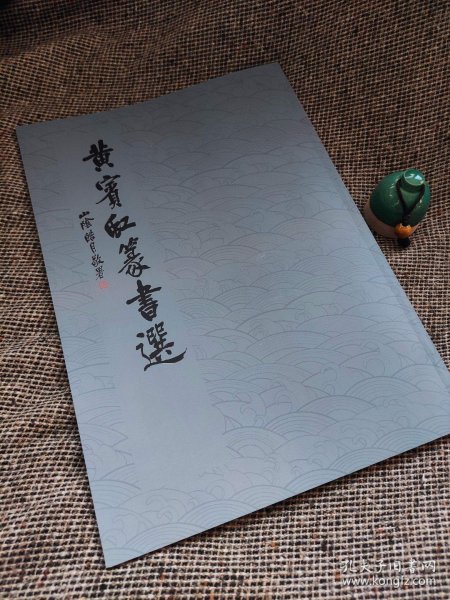 黄賓虹篆書選
山陰皓月敬署
孔夫子旧书网
www.kongfz.com